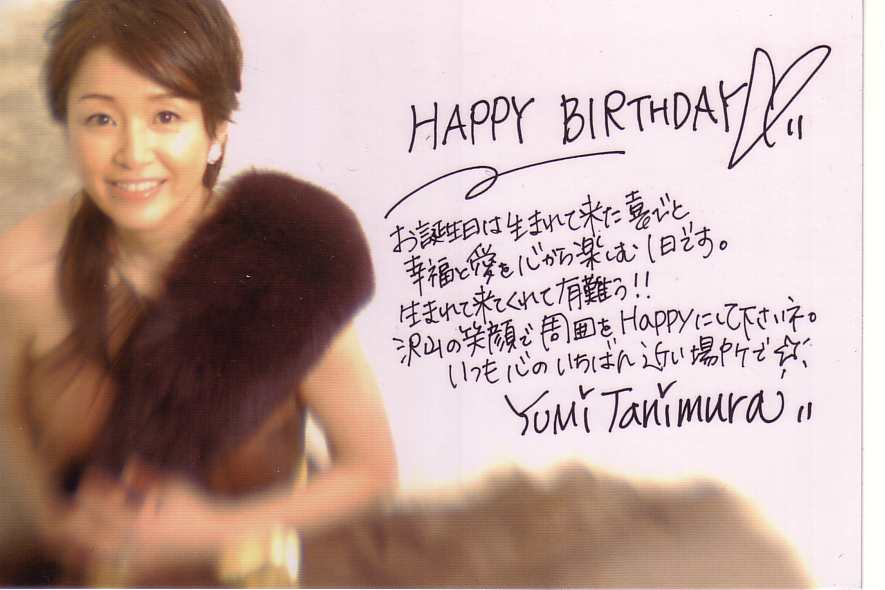 HAPPY BIRTHDAY
お誕生日は生まれて来た喜びと
幸福と愛を心から楽しむ1日です。
生まれて来てくれて有難う!!
沢山の笑顔で周囲をHappyにして下さいネ。
いつも心のいちばん近い場所で☆
Yumi Tanimura